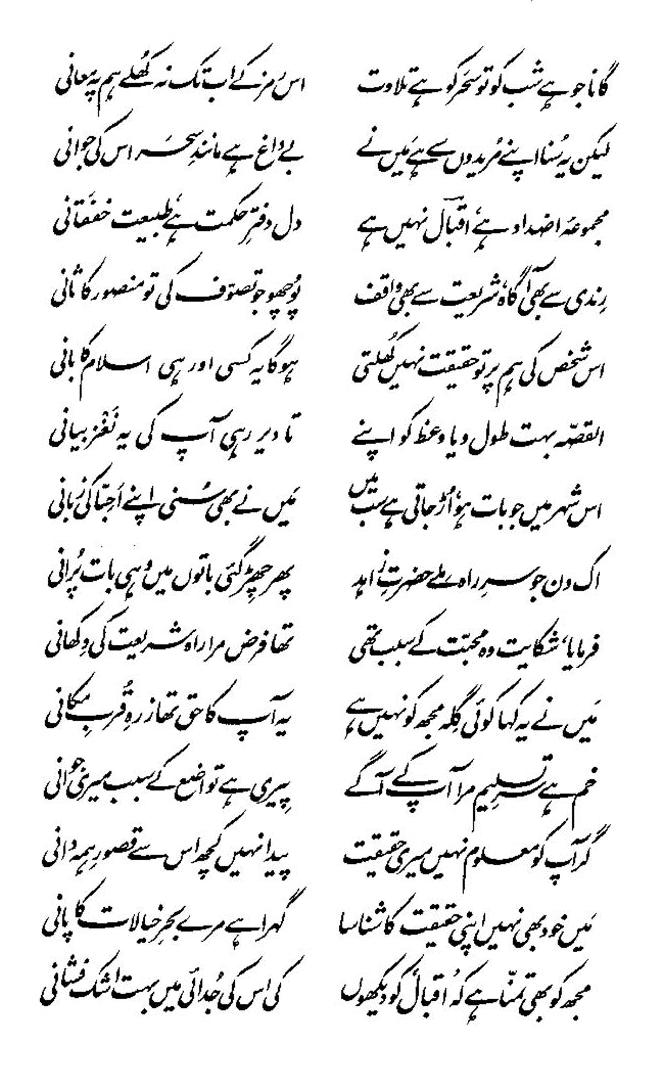 گانا جو ہے شب کو تو سحر کو ہے تلاوت اس رمز کے اب تک نہ کھلے ہم پہ معانی
لیکن یہ سُنا اپنے مُریدوں سے ہے مَیں نے بے داغ ہے مانندِ سحَر اس کی جوانی
مجموعۂ اضداد ہے، اقبالؔ نہیں ہے دل دفترِ حکمت ہے، طبیعت خفَقانی
رِندی سے بھی آگاہ، شریعت سے بھی واقف پُوچھو جو تصوّف کی تو منصور کا ثانی
اس شخص کی ہم پر تو حقیقت نہیں کُھلتی ہو گا یہ کسی اور ہی اسلام کا بانی
القصّہ بہت طول دیا وعظ کو اپنے تا دیر رہی آپ کی یہ نَغْز بیانی
اس شہر میں جو بات ہو، اُڑ جاتی ہے سب میں مَیں نے بھی سُنی اپنے اَحِبّا کی زبانی
اک دن جو سرِ راہ ملے حضرتِ زاہد پھر چھِڑ گئی باتوں میں وُہی بات پُرانی
فرمایا، شکایت وہ محبّت کے سبب تھی تھا فرض مرا راہ شریعت کی دِکھانی
مَیں نے یہ کہا کوئی گِلہ مجھ کو نہیں ہے یہ آپ کا حق تھا ز رہِ قُربِ مکانی
خم ہے سرِ تسلیم مرا آپ کے آگے پِیری ہے تواضع کے سبب میری جوانی
گر آپ کو معلوم نہیں میری حقیقت پیدا نہیں کچھ اس سے قصورِ ہمہ دانی
مَیں خود بھی نہیں اپنی حقیقت کا شناسا گہرا ہے مرے بحرِ خیالات کا پانی
مجھ کو بھی تمنّا ہے کہ اقبالؔ کو دیکھوں کی اس کی جُدائی میں بہت اشک فشانی